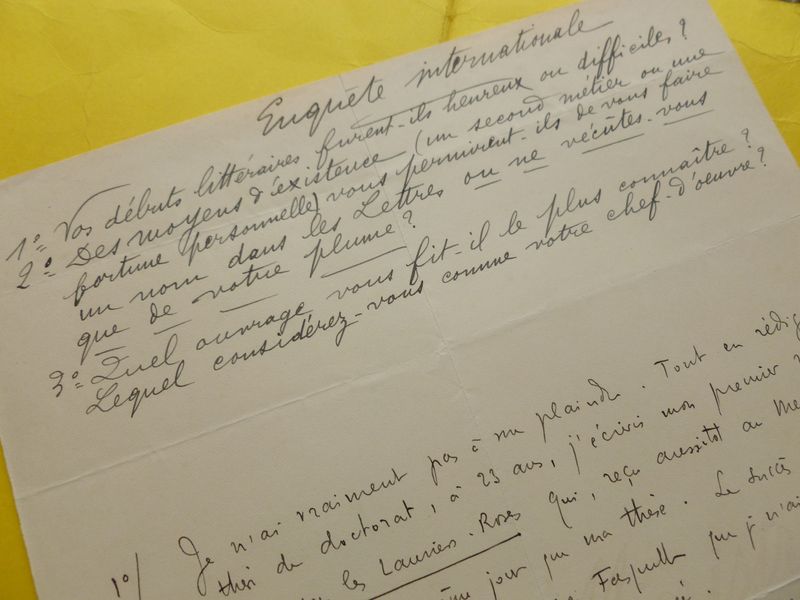 Enquête internationale
1º Vos débuts littéraires furent-ils heureux ou difficiles ?
2º Des moyens d'existence (un second métier ou une
fortune personnelle) vous permirent-ils de vous faire
un nom dans les Lettres ou ne vécûtes-vous
que de votre plume ?
3º Quel ouvrage vous fit-il le plus connaître ?
Lequel considérez-vous comme votre chef-d'oeuvre ?
1º/ Je n'ai vraiment pas à me plaindre. Tout en rédig
thèse de doctorat, à 23 ans, j'écrivis mon premier
les Lauriers-Roses qui, reçu aussitôt au Me
jour que ma thèse. Le succès
Fasquelle que je n'ai